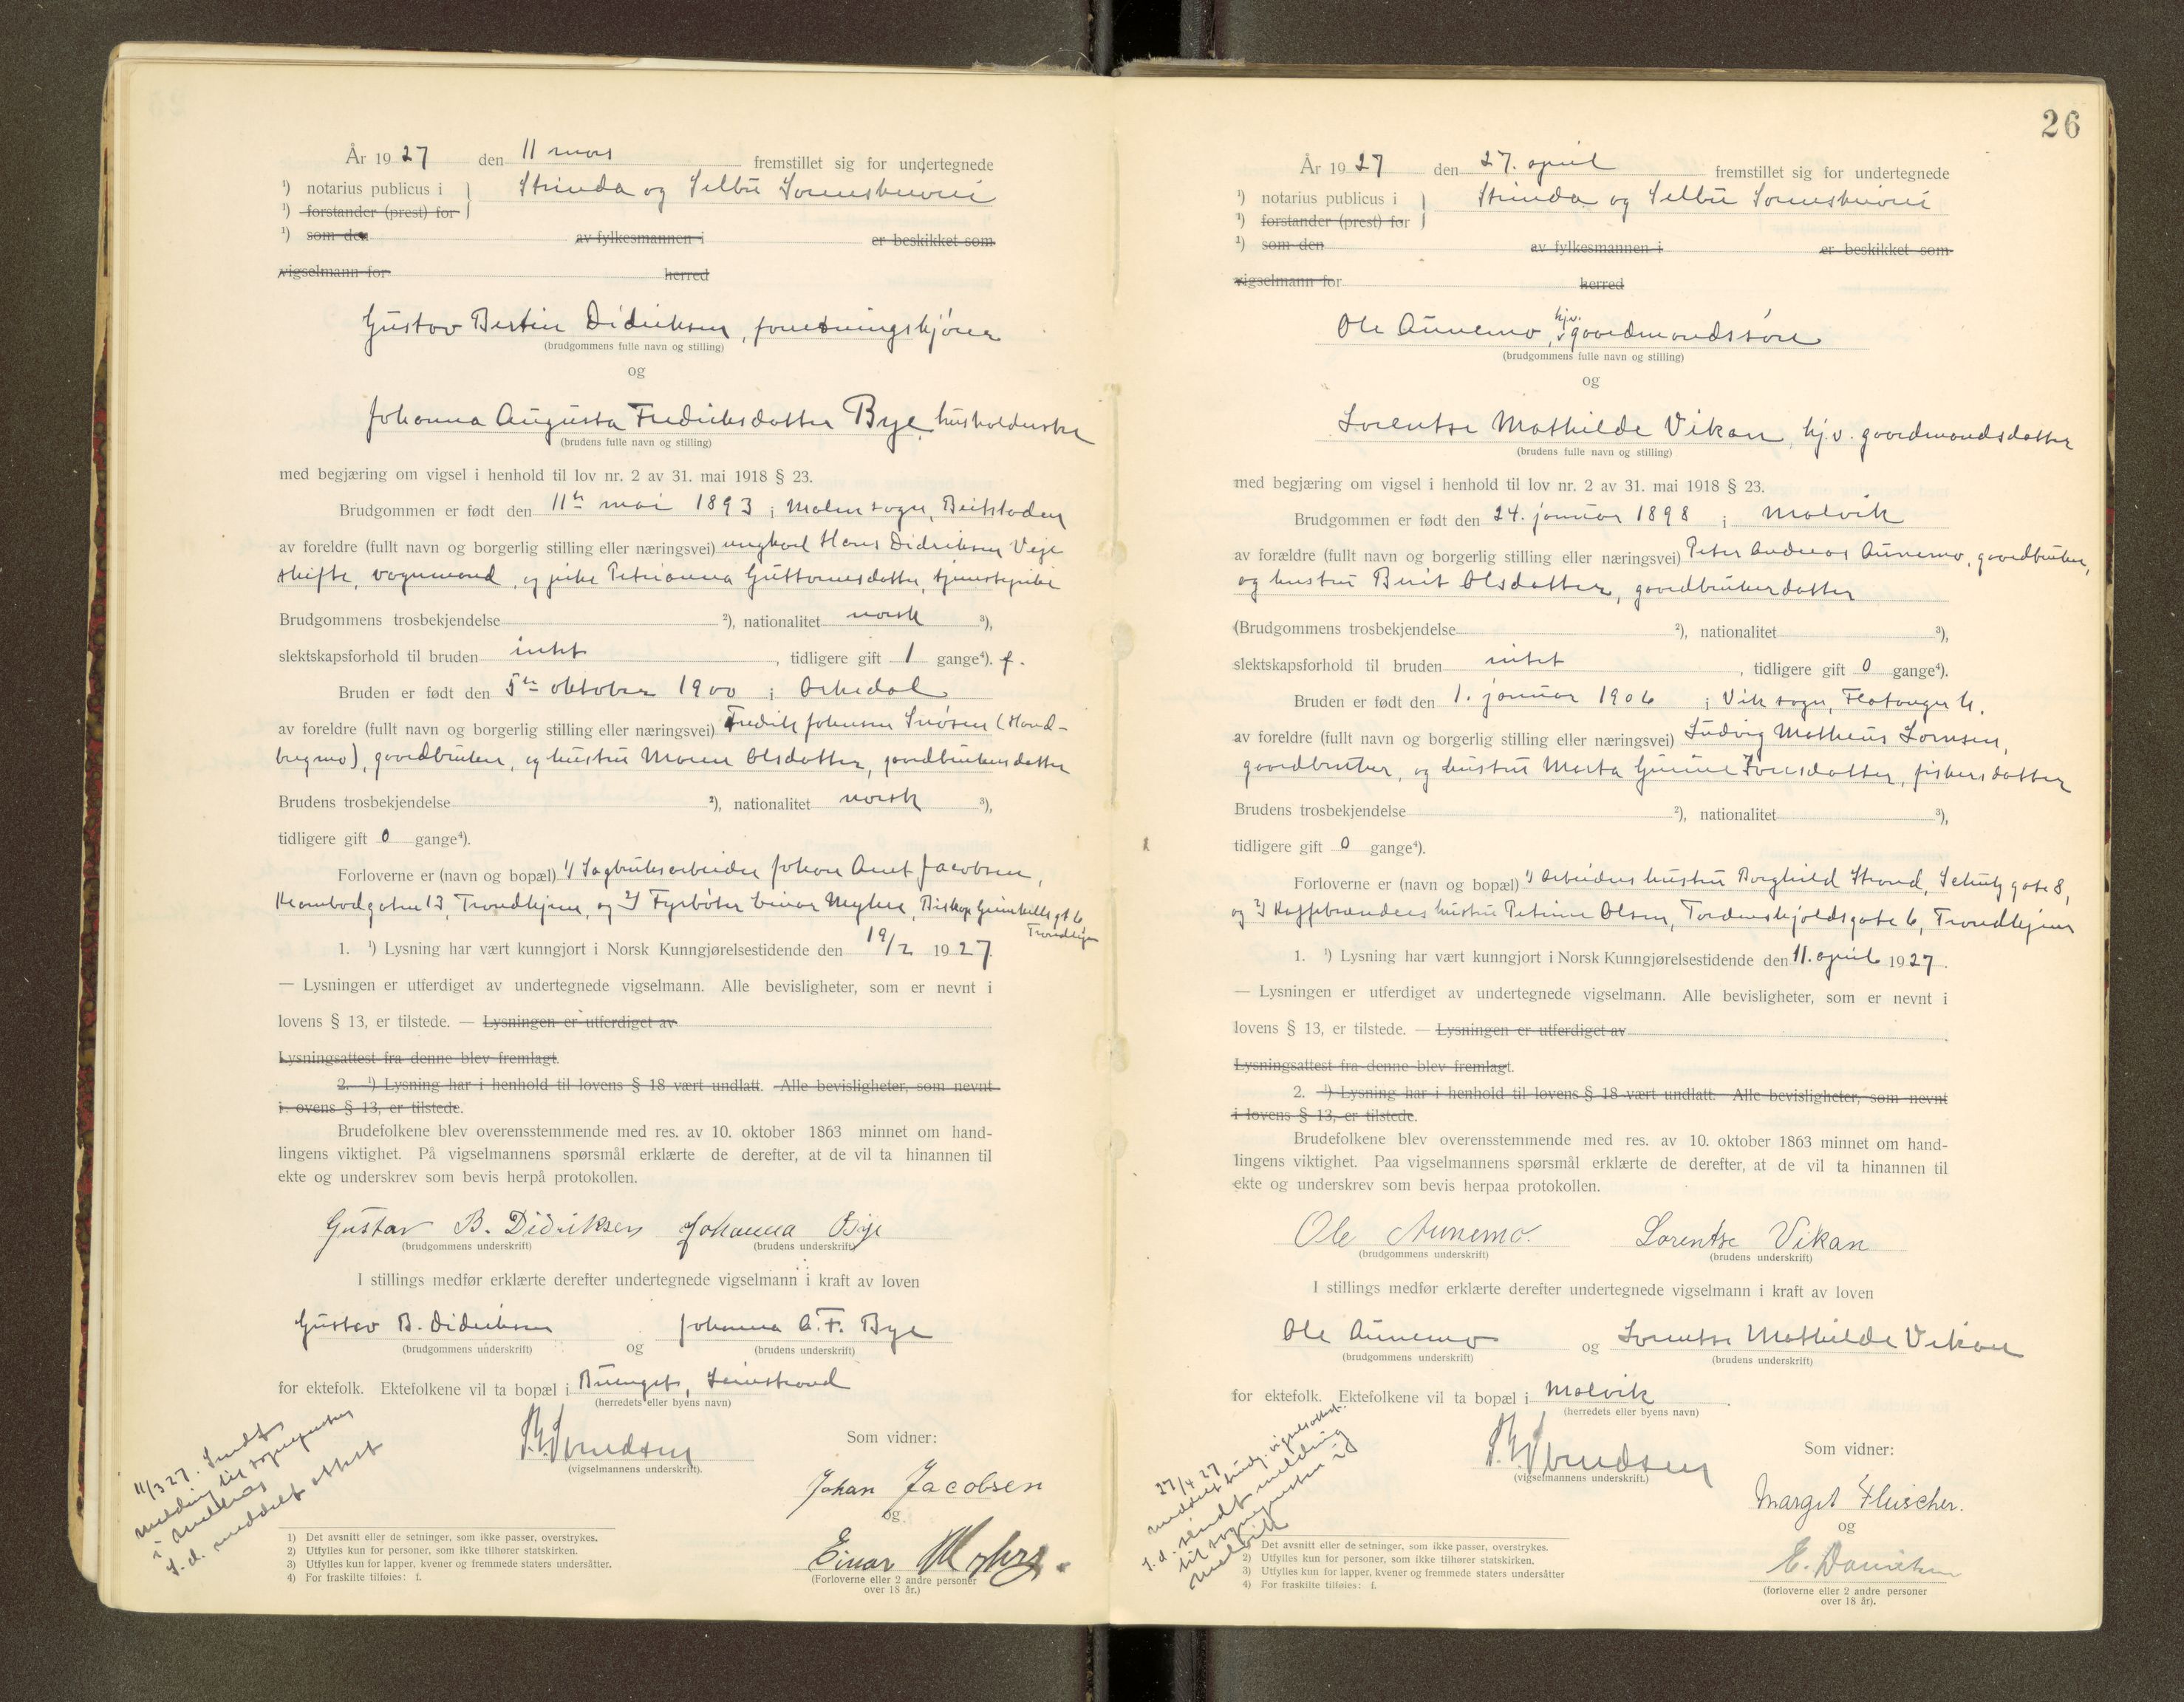 År 1927 den 11 mars fremstillet sig for undertegnede
¹) notarius publicus i } Strinda og Selbu Sorenskriveri
¹) forstander (prest) for
¹) som den av fylkesmannen i er beskikket som
vigselmann for herred
Gustav Bertin Didriksen, forretningskjører
(brudgommens fulle navn og stilling)
og
Johanna Augusta Fredriksdatter Bye, husholderske
(brudens fulle navn og stilling)
med begjæring om vigsel i henhold til lov nr. 2 av 31. mai 1918 § 23.
Brudgommen er født den 11te mai 1893 i Malm sogn, Beitstaden
av foreldre (fullt navn og borgerlig stilling eller næringsvei) ungkarl Hans Didriksen Veje
skifte, vognmand, og pike Petrianna Guttormsdatter, tjenestepike
Brudgommens trosbekjendelse ²), nationalitet norsk ³),
slektskapsforhold til bruden intet, tidligere gift 1 gange⁴). f.
Bruden er født den 5te oktober 1900 i Orkedal
av foreldre (fullt navn og borgerlig stilling eller næringsvei) Fredrik Johnsen Snøsen (Hand-
bregmo), gaardbruker, og hustru Maren Olsdatter, gaardbrukersdatter
Brudens trosbekjendelse ²), nationalitet norsk ³),
tidligere gift 0 gange⁴).
Forloverne er (navn og bopæl) 1/ Sagbruksarbeider Johan Anet Jacobsen,
Krambodgaten 13, Trondhjem, og 2/ Fyrbøter Einar Myhre, Biskop Grimkells gt 6,
Trondhjem
1. ¹) Lysning har vært kunngjort i Norsk Kunngjørelsestidende den 19/2 1927.
— Lysningen er utferdiget av undertegnede vigselmann. Alle bevisligheter, som er nevnt i
lovens § 13, er tilstede. — Lysningen er utferdiget av
Lysningsattest fra denne blev fremlagt.
2. ¹) Lysning har i henhold til lovens § 18 vært undlatt. Alle bevisligheter, som nevnt
i ovens § 13, er tilstede.
Brudefolkene blev overensstemmende med res. av 10. oktober 1863 minnet om hand-
lingens viktighet. På vigselmannens spørsmål erklærte de derefter, at de vil ta hinannen til
ekte og underskrev som bevis herpå protokollen.
Gustav B. Didriksen Johanna Bye
(brudgommens underskrift) (brudens underskrift)
I stillings medfør erklærte derefter undertegnede vigselmann i kraft av loven
Gustav B. Didriksen og Johanna A. F. Bye
(brudgommens underskrift) (brudens underskrift)
for ektefolk. Ektefolkene vil ta bopæl i Buenget, Leinstrand
(herredets eller byens navn)
(vigselmannens underskrift).
Som vidner:
Johan Jacobsen
og
Einar Myhre.
(Forloverne eller 2 andre personer
over 18 år.)
11/3 27. Sendt
melding til sogneprsten
i Melhus
S. d. meddelt attest
1) Det avsnitt eller de setninger, som ikke passer, overstrykes.
2) Utfylles kun for personer, som ikke tilhører statskirken.
3) Utfylles kun for lapper, kvener og fremmede staters undersåtter.
4) For fraskilte tilføies: f.
26
År 1927 den 27. april fremstillet sig for undertegnede
¹) notarius publicus i } Strinda og Selbu Sorenskriveri
¹) forstander (prest) for
¹) som den av fylkesmannen i er beskikket som
vigselmann for herred
Ole Aunemo, hjv. gaardmandssøn
(brudgommens fulle navn og stilling)
og
Lorentse Mathilde Vikan, hj.v. gaardmandsdatter
(brudens fulle navn og stilling)
med begjæring om vigsel i henhold til lov nr. 2 av 31. mai 1918 § 23.
Brudgommen er født den 24. januar 1898 i Malvik
av forældre (fullt navn og borgerlig stilling eller næringsvei) Peter Andreas Aunemo, gaardbruker,
og hustru Berit Olsdatter, gaardbrukerdatter
(Brudgommens trosbekjendelse ²), nationalitet ³),
slektskapsforhold til bruden intet, tidligere gift 0 gange⁴).
Bruden er født den 1. januar 1906 i Vik sogn, Flatanger h.
av foreldre (fullt navn og borgerlig stilling eller næringsvei) Ludvig Matheus Larnsen,
gaardbruker, og hustru Marta Gurine Jonsdatter, fiskersdatter
Brudens trosbekjendelse ²), nationalitet ³),
tidligere gift 0 gange⁴).
Forloverne er (navn og bopæl) 1/ Arbeiders hustru Borghild Strand, Schutz gate 8,
og 2/ Kaffebrænders hustru Petrine Olsen, Tordenskjoldsgate 6, Trondhjem
1. ¹) Lysning har vært kunngjort i Norsk Kunngjørelsestidende den 11. april 1927.
— Lysningen er utferdiget av undertegnede vigselmann. Alle bevisligheter, som er nevnt i
lovens § 13, er tilstede. — Lysningen er utferdiget av
Lysningsattest fra denne blev fremlagt.
2. ¹) Lysning har i henhold til lovens § 18 vært undlatt. Alle bevisligheter, som nevnt
i lovens § 13, er tilstede.
Brudefolkene blev overensstemmende med res. av 10. oktober 1863 minnet om hand-
lingens viktighet. Paa vigselmannens spørsmål erklærte de derefter, at de vil ta hinannen til
ekte og underskrev som bevis herpaa protokollen.
Ole Aunemo. Lorentse Vikan
(brudgommens underskrift) (brudens underskrift)
I stillings medfør erklærte derefter undertegnede vigselmann i kraft av loven
Ole Aunemo og Lorentse Mathilde Vikan
(brudgommens underskrift) (brudens underskrift)
for ektefolk. Ektefolkene vil ta bopæl i Malvik
(herredets eller byens navn)
(vigselmannens underskrift.)
Som vidner:
Margit Fleischer.
og
E. Danielsen
(forloverne eller 2 andre personer
over 18 år).
27/4 27
meddelt brudg. vigselsattest.
S. d. sendt melding
til sognepresten i
Malvik
1) Det avsnitt eller de setninger, som ikke passer, overstrykes.
2) Utfylles kun for personer, som ikke tilhører statskirken.
3) Utfylles kun for lapper, kvener og fremmede staters undersåtter
4) For fraskilte tilføies: f.